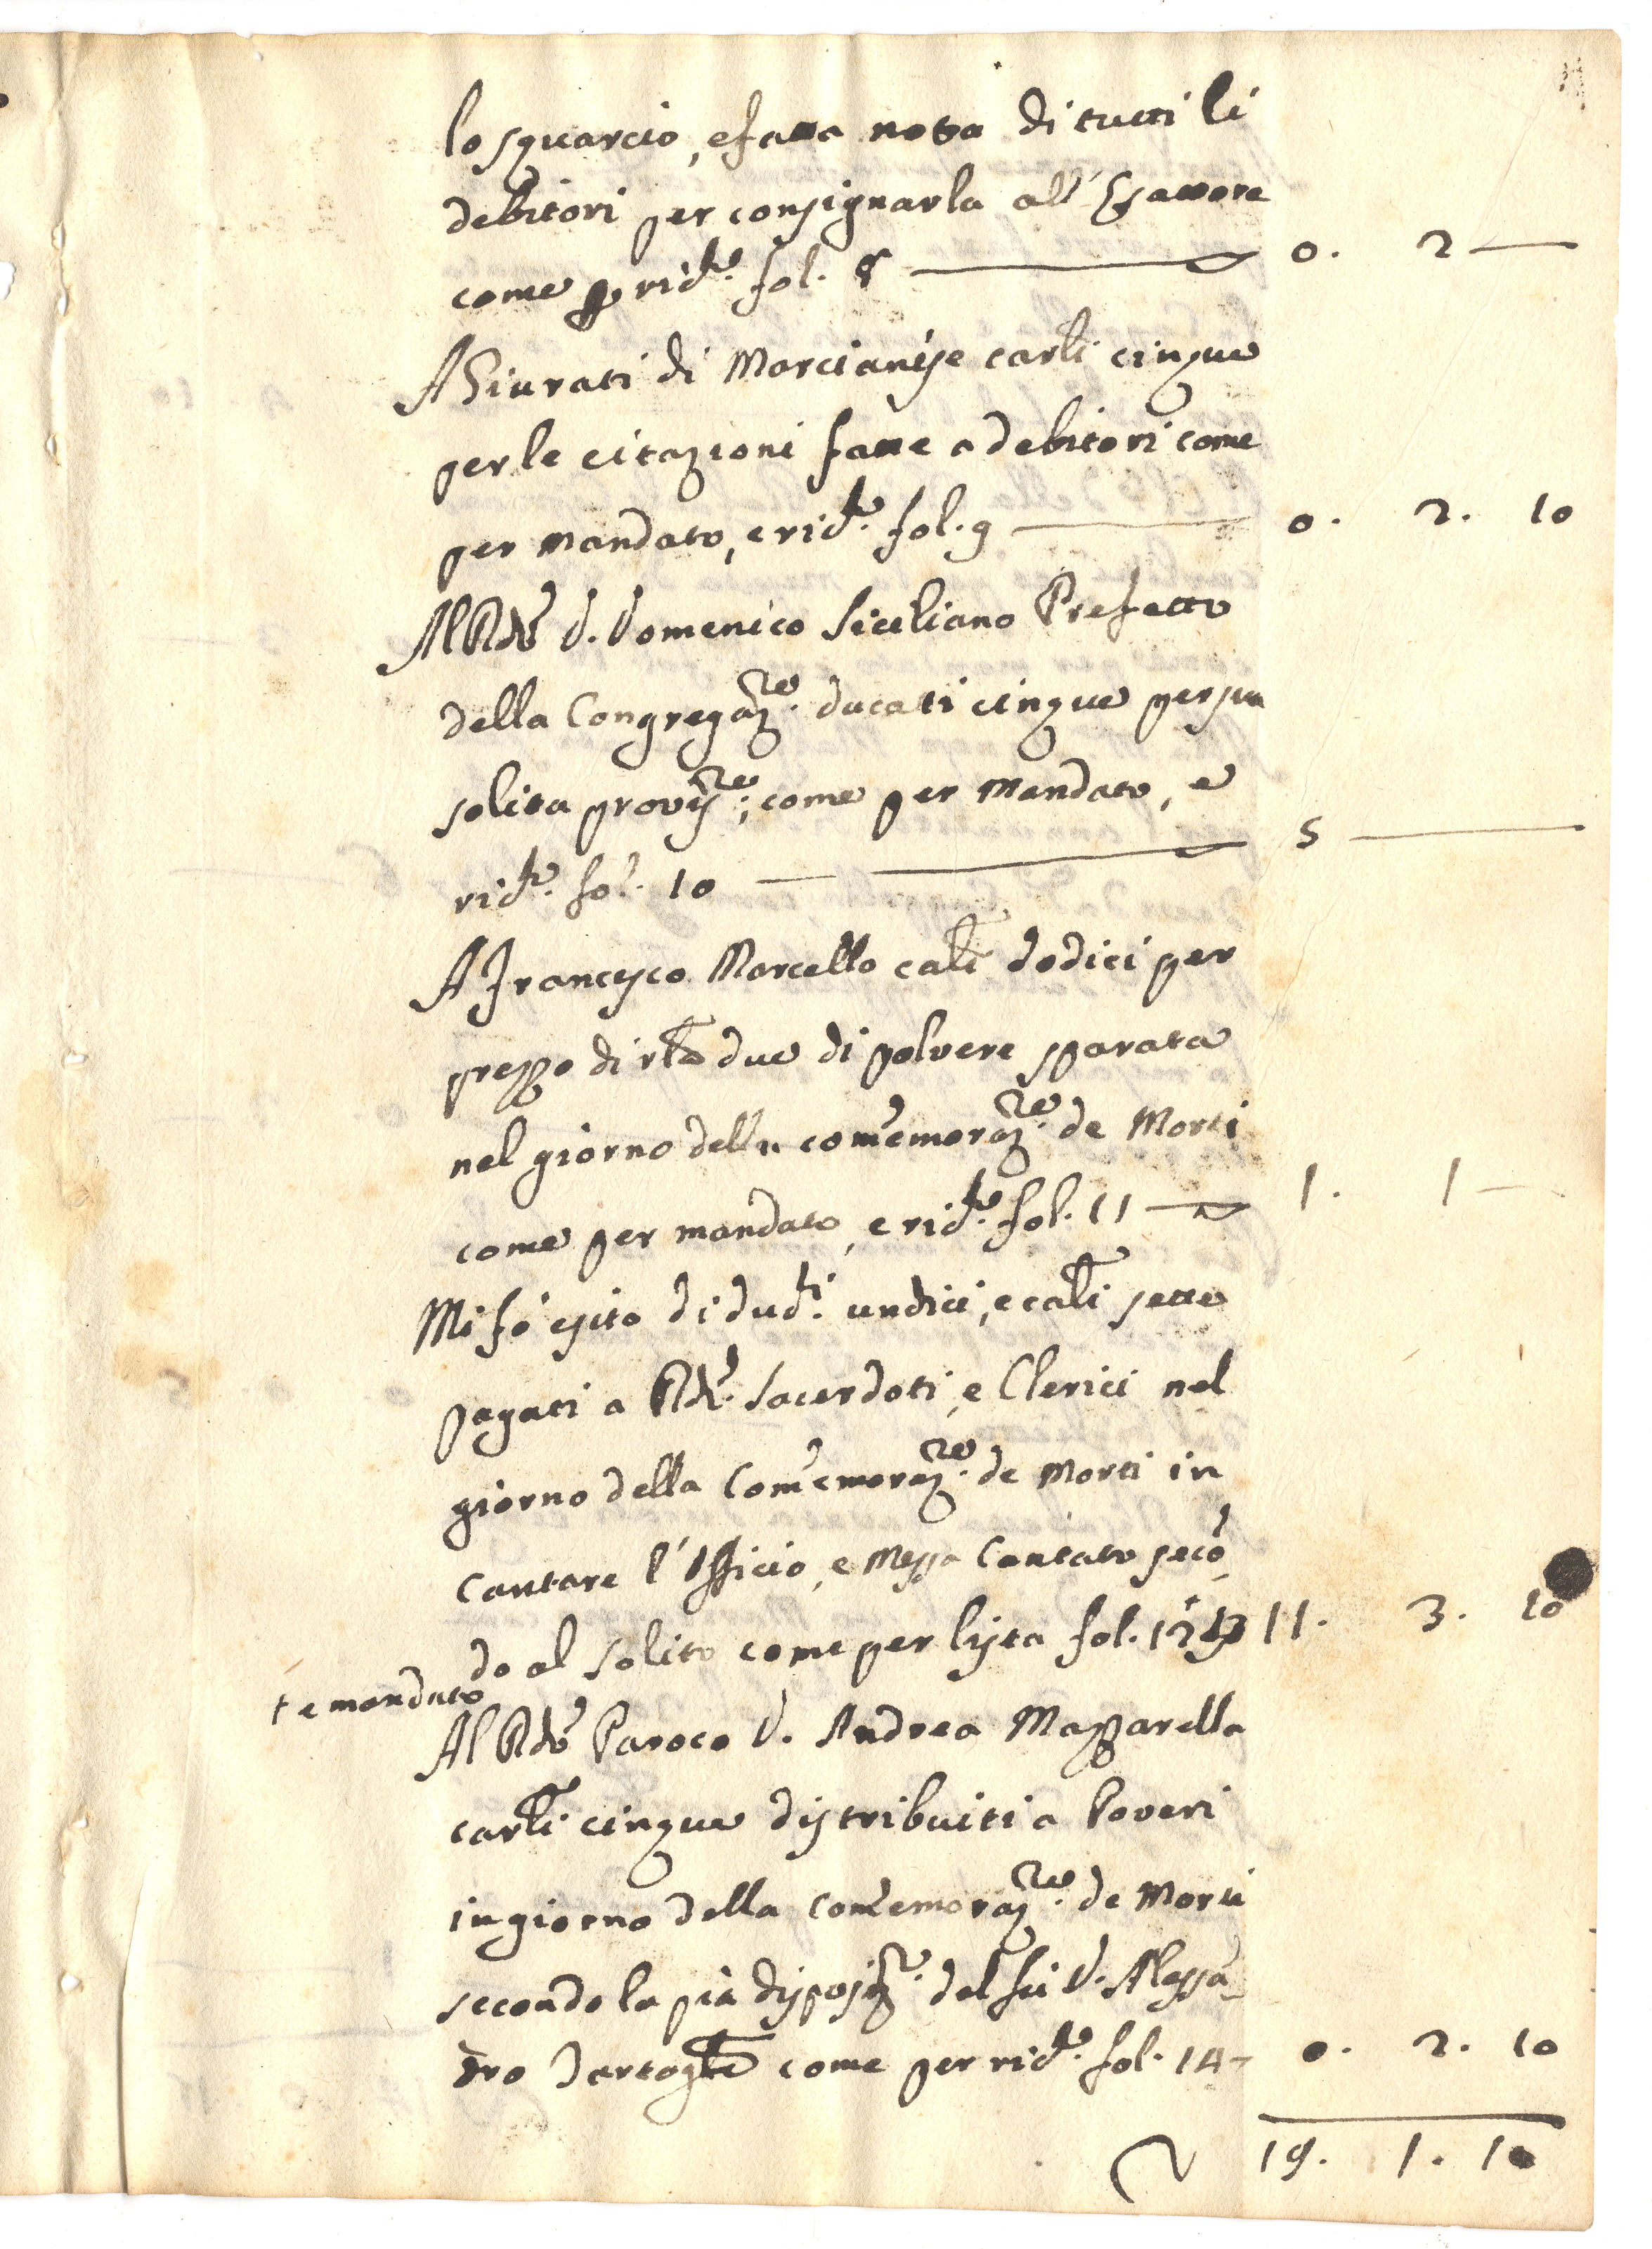 lo squarcio, e fatta nota di tutti li
debitori per consignarla all' Esattore
come p rid.ta fol. 8 0. 2 —
A Giurati di Marcianise carl.i cinque
per le citazioni fatte a debitori come
per mandato, e rid.ta fol. 9 0. 2. 10
Al R.do D. Domenico Siciliano Prefetto
della Congregaz.ne ducati cinque per sua
solita provis.ne, come per mandato, e
rid.ta fol. 10 5 —
A Francesco Marcello cal.i dodici per
prezzo di rt.a due di polvere sparata
nel giorno della com̃emoraz.ne de Morti
come per mandato, e rid.ta fol. 11 1. 1 —
Mi fò esito di dud.ti undici, e cal.i sette
pagati a R.di Sacerdoti, e Clerici nel
giorno della Com̃emoraz.ne de Morti in
cantare l'Officio, e Messa Cantata secõ
do al solito come per lista fol. 12 † 13 11. 3. 10
† e mandato
Al R.do Paroco D. Andrea Mazzarella
carl.i cinque distribuiti a Poveri
in giorno della com̃emoraz.ne de Morti
secondo la pia disposiz.ne del fù D. Alessã
dro Tartagl.e come per rid.ta fol. 14 0. 2. 10
19. 1. 10